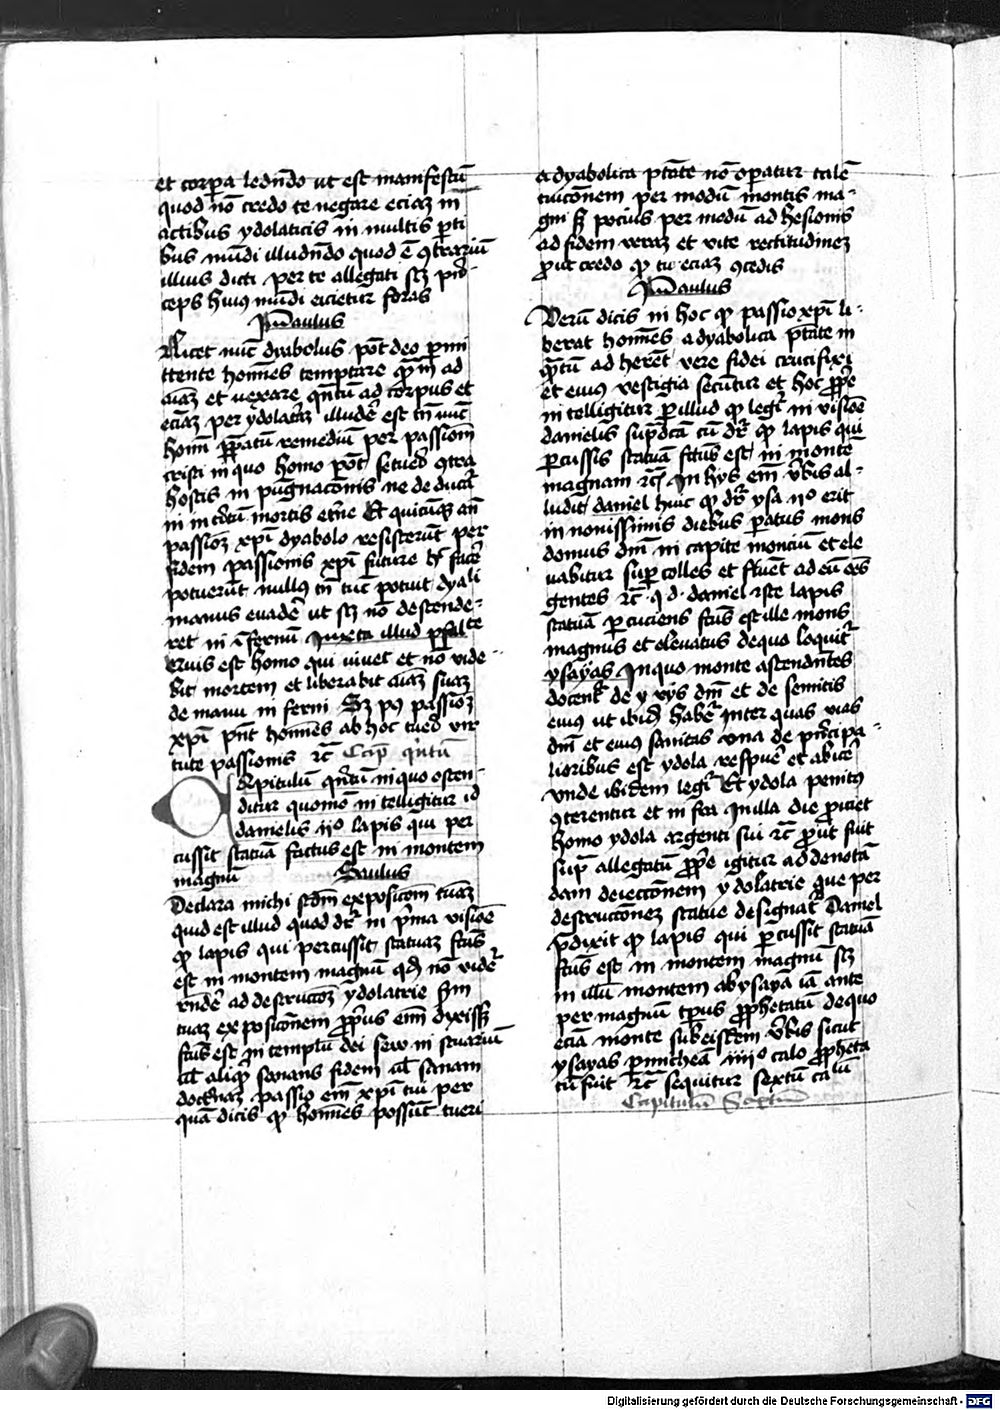 et corpora ledendo ut est manifestū
quod nō credo te negare eciaz in
actibus ydolaticis in multis p̄ti
bus mūdi illudendo quod ē 9trariū
illius dicti per te allegati sꝫ prī
ceps huius mūdi eicietur foras
Paulus
Licet nūc dyabolus pōt deo p̄mi
ttente homīes temptare quātū ad
aīaz et vexare quātū ad corpus et
eciaz per ydolatriaz illudē est tn̄ nūc
homī p̄paratū remediū per passionē
cristi in quo homo pōt se tueri 9tra
hostis in pugnacōnis ne deducat̄
in int̄itum mortis et̄ne Et quicūqꝫ an̄
passioꝫ xp̄i dyabolo resisterūt per
fidem passionis xp̄i future hoc facē
potuerūt nullus tn̄ tūc potuit dyali
manus evadē ut sꝫ nō descende-
ret in īfernū Juxta illud psal te
Qvis est homo qui vivet et nō vide-
bit mortem et liberabit aīaz suaz
de manu inferni Sꝫ post passioꝫ
xp̄i pn̄t homīes ab hoc tueri vir
tute passionis ꝛc̄ Cap̄ quītū
Capitulū quītum in quo osten-
ditur quomō intelligitur id
danielis iiº lapis qui per
cussit statuā factus est in montem
magnū Saulus
Declara michi scd̄m exposicōem tuaz
quid est illud quod dr̄ in p̄ma visiōe
quod lapis qui percussit statuaz fctūs
est in montem magnū qd̄ nō videt̄
rn̄dē ad destructōꝫ ydolatrie scd̄m
tuaz exposicōnem ppriūs em̄ dixiss̄
fctūs est in templū dei seu in scuariū
vl̄ aliquod sonans fidem vl̄ sanam
doctrinaz passio em̄ xp̄i tui per
quā dicis quod homīes possūt tueri
a dyabolica ptāte nō operatur talē
tuicōnem per modū montis ma-
gni sꝫ pocius per modū adhesionis
ad fidem veraz et vite rectitudinez
prout credo quod tu eciaz 9cedis
Paulus
Verū dicis in hoc quod passio xp̄i li-
berat homīes a dyabolica ptāte in
quātū adherēt vere fidei crucifixi
et eius vestigia secūtur et hoc pprīe
intelligitur per illud quod legit̄ in visiōe
danielis sup̄dcā cū dr̄ quod lapis qui
percussit statuā fctūs est in montē
magnam ꝛc̄ In hys em̄ v̄bis al-
ludit daniel huic quod dr̄ ysa iiº erit
in novissimis diebus p̄atus mons
domus dnī in capite monciū et ele
vabitur sup̄ colles et fluēt ad eū oēs
gentes ꝛc̄ q d daniel iste lapis
statuā percuciens fctūs est ille mons
magnus et elevatus de quo loquit̄
ysayas In quo monte ascendentes
docent̄ de vys dnī et de semitis
eius ut ibidē habet̄ inter quas vias
dnī et eius semitas una de prīcipa-
lioribus est ydola respuē et abicē
vnde ibidem legit̄ Et ydola penitus
9terentur et infra In illa die proiciet
homo ydola argenti sui ꝛc̄ prout fuit
sup̄ allegatū pprīe igitur ad denotā
dam deieccōnem ydolatrie que per
destruccōnez statue designat̄ Daniel
p̄dixit quod lapis qui percussit statuā
fctūs est in montem magnū sꝫ
in illū montem ab ysaya iā ante
per magnū tempus prophetatū de quo
eciā monte sub eisdem v̄bis sicut
ysayas per micheā iiiiº capºlo propheta
tū fuit ꝛc̄ sequitur sextū calū
Capitulū Sextum
Digitalisierung gefördert durch die Deutsche Forschungsgemeinschaft - DFG